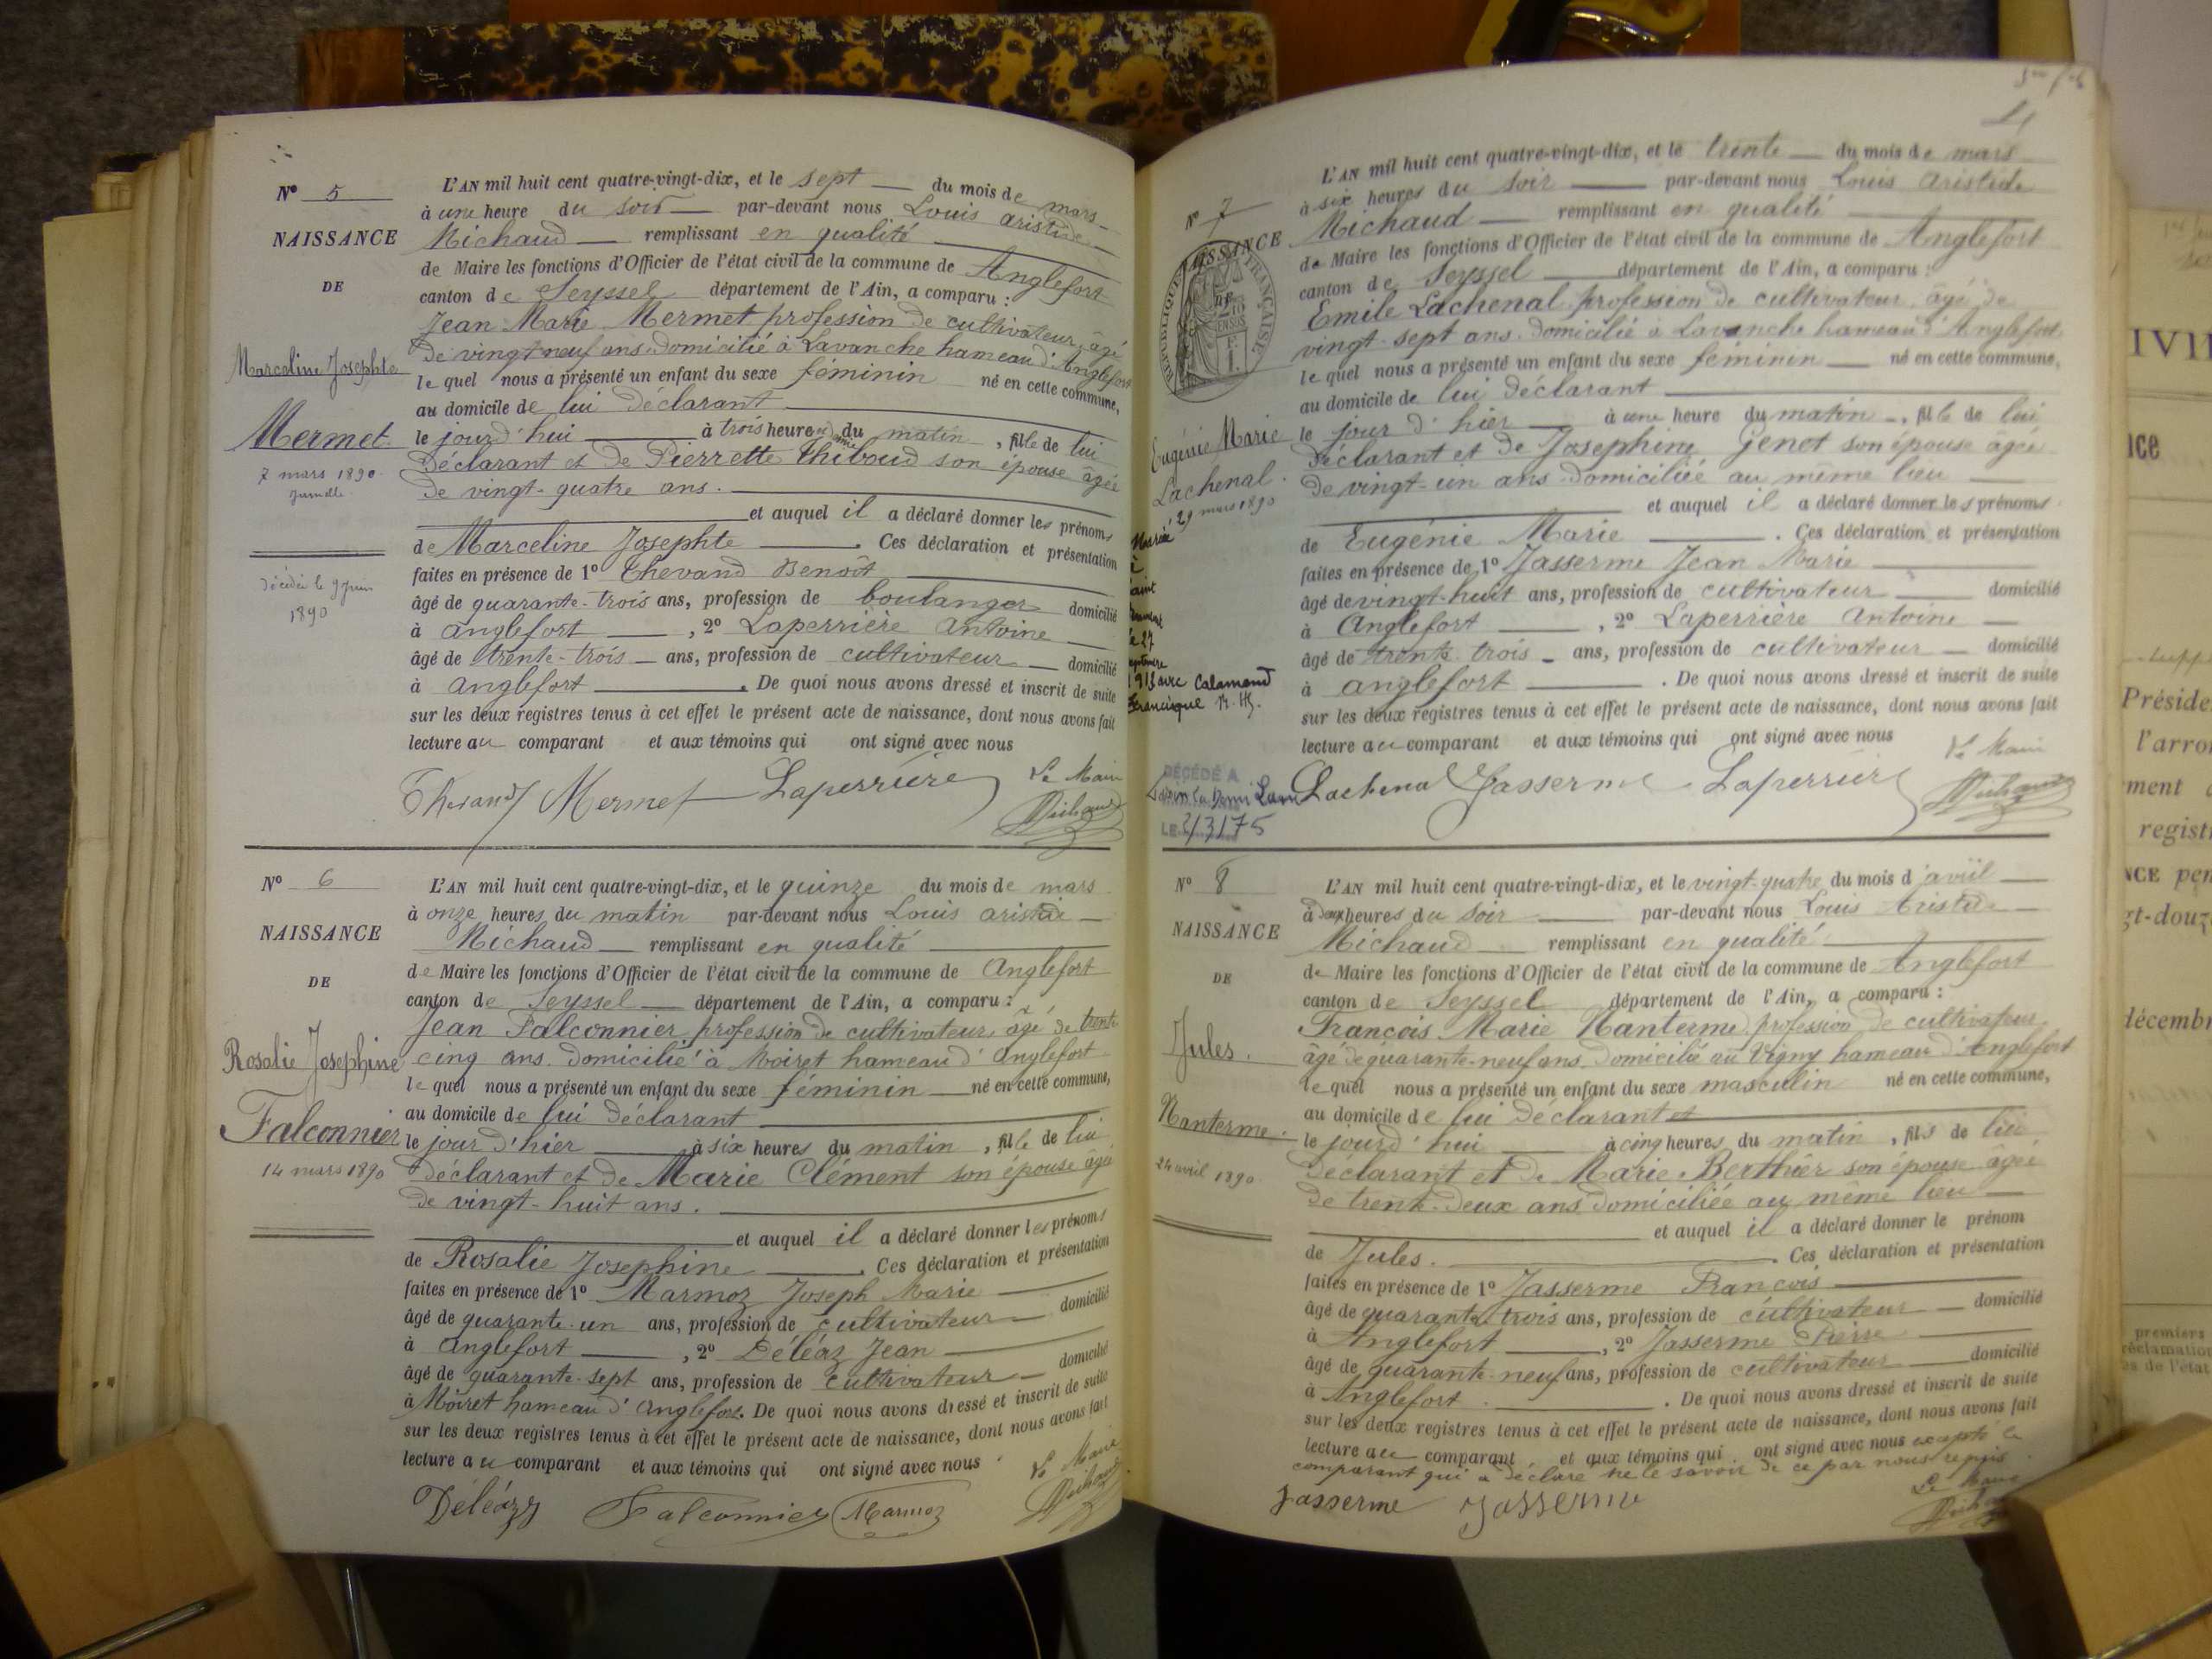 N° 5
NAISSANCE
DE
Marceline Josephte
Mermet
7 mars 1890
jumelle
décédée le 9 juin
1890
L'AN mil huit cent quatre-vingt-dix, et le sept du mois de mars
à une heure du soir par-devant nous Louis Aristide
Michaud remplissant en qualité
de Maire les fonctions d'Officier de l'état civil de la commune de Anglefort
canton de Seyssel département de l'Ain, a comparu :
Jean Marie Mermet profession de cultivateur, âgé
de vingt neuf ans. domicilié à Lavanche hameau d'Anglefort
le quel nous a présenté un enfant du sexe féminin né en cette commune,
au domicile de lui déclarant
le jourd'hui à trois heures du matin, fille de lui
déclarant et de Pierrette Thibaud son épouse âgée
de vingt-quatre ans.
et auquel il a déclaré donner les prénoms
de Marceline Josephte. Ces déclaration et présentation
faites en présence de 1° Thevand Benoit
âgé de quarante-trois ans, profession de boulanger domicilié
à Anglefort, 2° Laperrière Antoine
âgé de trente-trois ans, profession de cultivateur domicilié
à Anglefort. De quoi nous avons dressé et inscrit de suite
sur les deux registres tenus à cet effet le présent acte de naissance, dont nous avons fait
lecture au comparant et aux témoins qui ont signé avec nous
Thevand Mermet Laperrière Le Maire
Michaud
N° 6
NAISSANCE
DE
Rosalie Josephine
Falconnier
14 mars 1890
L'AN mil huit cent quatre-vingt-dix, et le quinze du mois de mars
à onze heures du matin par-devant nous Louis Aristide
Michaud remplissant en qualité
de Maire les fonctions d'Officier de l'état civil de la commune de Anglefort
canton de Seyssel département de l'Ain, a comparu :
Jean Falconnier profession de cultivateur, âgé de trente
cinq ans. domicilié à Moiret hameau d'Anglefort
le quel nous a présenté un enfant du sexe féminin né en cette commune,
au domicile de lui déclarant
le jour d'hier à six heures du matin, fille de lui
déclarant et de Marie Clément son épouse âgée
de vingt-huit ans.
et auquel il a déclaré donner les prénoms
de Rosalie Josephine. Ces déclaration et présentation
faites en présence de 1° Marmoz Joseph Marie
âgé de quarante-un ans, profession de cultivateur domicilié
à Anglefort, 2° Déléaz Jean
âgé de quarante-sept ans, profession de cultivateur domicilié
à Moiret hameau d'Anglefort. De quoi nous avons dressé et inscrit de suite
sur les deux registres tenus à cet effet le présent acte de naissance, dont nous avons fait
lecture au comparant et aux témoins qui ont signé avec nous
Le Maire
Déléaz Falconnier Marmoz Michaud
4
N° 7
NAISSANCE
RÉPUBLIQUE FRANÇAISE
Eugénie Marie
Lachenal
29 mars 1890
Mariée
à
le 27
septembre
1913 avec Calamand
Francisque
DÉCÉDÉ A
LE 2/3/75
L'AN mil huit cent quatre-vingt-dix, et le trente du mois de mars
à six heures du soir par-devant nous Louis Aristide
Michaud remplissant en qualité
de Maire les fonctions d'Officier de l'état civil de la commune de Anglefort
canton de Seyssel département de l'Ain, a comparu :
Emile Lachenal profession de cultivateur, âgé de
vingt-sept ans. domicilié à Lavanche hameau d'Anglefort
le quel nous a présenté un enfant du sexe féminin né en cette commune,
au domicile de lui déclarant
le jour d'hier à une heure du matin, fille de lui
déclarant et de Josephine Genet son épouse âgée
de vingt-un ans domiciliée au même lieu
et auquel il a déclaré donner les prénoms
de Eugénie Marie. Ces déclaration et présentation
faites en présence de 1° Jasserme Jean Marie
âgé de vingt-huit ans, profession de cultivateur domicilié
à Anglefort, 2° Laperrière Antoine
âgé de trente trois ans, profession de cultivateur domicilié
à Anglefort. De quoi nous avons dressé et inscrit de suite
sur les deux registres tenus à cet effet le présent acte de naissance, dont nous avons fait
lecture au comparant et aux témoins qui ont signé avec nous
Le Maire
Lachenal Jasserme Laperrière Michaud
N° 8
NAISSANCE
DE
Jules.
Nanterme.
24 avril 1890.
L'AN mil huit cent quatre-vingt-dix, et le vingt-quatre du mois d'avril
à deux heures du soir par-devant nous Louis Aristide
Michaud remplissant en qualité
de Maire les fonctions d'Officier de l'état civil de la commune de Anglefort
canton de Seyssel département de l'Ain, a comparu :
François Marie Nanterme profession de cultivateur
âgé de quarante-neuf ans. domicilié au Vigny hameau d'Anglefort
le quel nous a présenté un enfant du sexe masculin né en cette commune,
au domicile de lui déclarant et
le jourd'hui à cinq heures du matin, fils de lui
déclarant et de Marie Berthier son épouse âgée
de trente-deux ans domiciliée au même lieu
et auquel il a déclaré donner le prénom
de Jules. Ces déclaration et présentation
faites en présence de 1° Jasserme François
âgé de quarante trois ans, profession de cultivateur domicilié
à Anglefort, 2° Jasserme Pierre
âgé de quarante-neuf ans, profession de cultivateur domicilié
à Anglefort. De quoi nous avons dressé et inscrit de suite
sur les deux registres tenus à cet effet le présent acte de naissance, dont nous avons fait
lecture au comparant et aux témoins qui ont signé avec nous excepté le
comparant qui a déclaré ne le savoir de ce par nous requis
Le Maire
Jasserme Jasserme Michaud